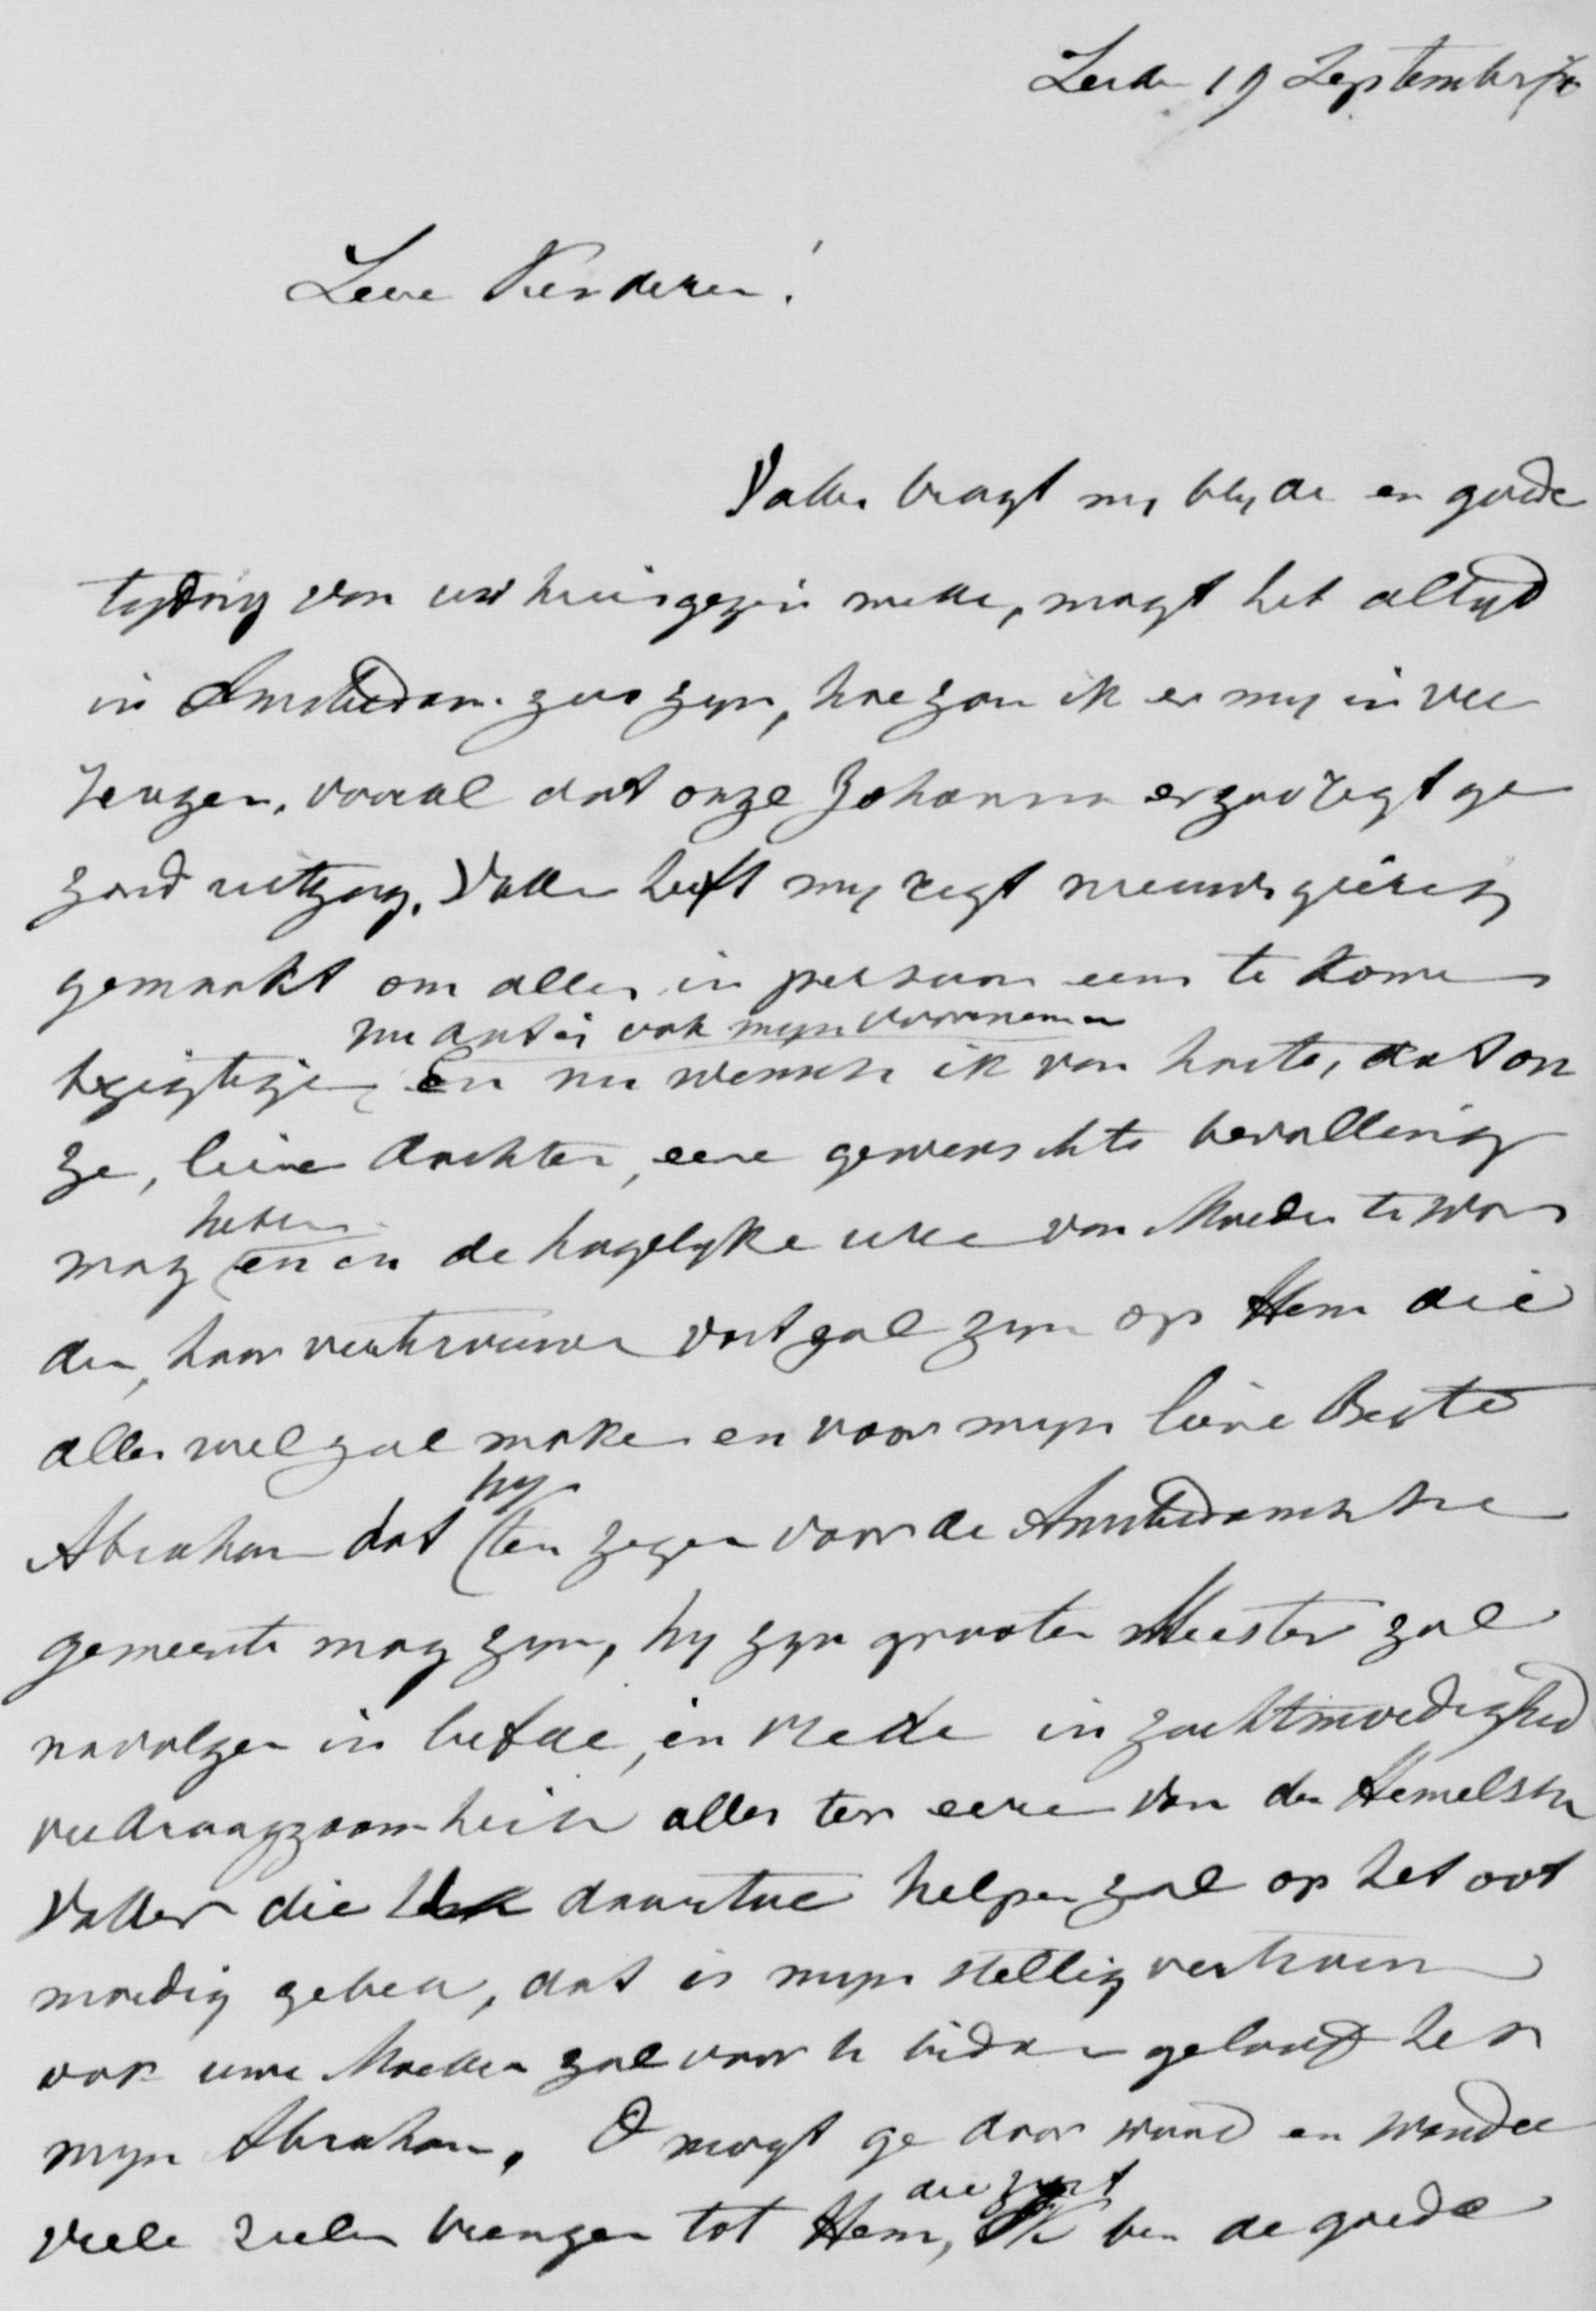 Leiden 19 September 70
Lieve Kinderen!
Vader bragt my blyde en goede
tyding van uw huisgezin mede, mogt het altyd
in Amsterdam zoo zyn, hoe zou ik er my in ver
heugen, vooral dat onze Johanna er zoo regt ge
zond uitzag. Vader heeft my regt nieuwsgierig
gemaakt om alles in persoon eens te komen
nu dat is ook myn voornemen
bezigtigen En nu wensch ik van harte, dat on
ze, lieve dochter, eene gewenschte bevalling
hebben
mag en in de hagelyke ure van Moeder te wor
den, haar vertrouwen vast zal zyn op Hem die
alles wel zal maken en voor myn lieve Beste
hy
Abraham dat ten zegen voor de Amsterdamsche
gemeente mag zyn, hy zyn grooten Meester zal
navolgen in liefde, in vrede in zachtmoedigheid
verdraagzaamheid alles ter eere van den Hemelschen
Vader die daartoe helpen zal op het oot
moedig gebed, dat is myn stellig vertrouwen
ook uwe Moeder zal voor u bidden geloof het
myn Abraham. O mogt ge door woord en wandel
die zegt
vele zielen brengen tot Hem, Ik ben de goede